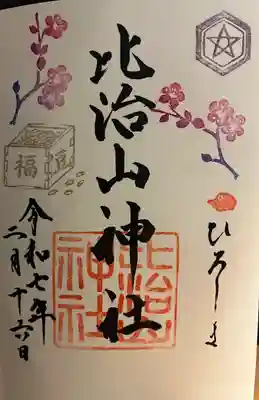 比治山神社
ひろしま
福
令和七年
二月十六日
比治山
神社